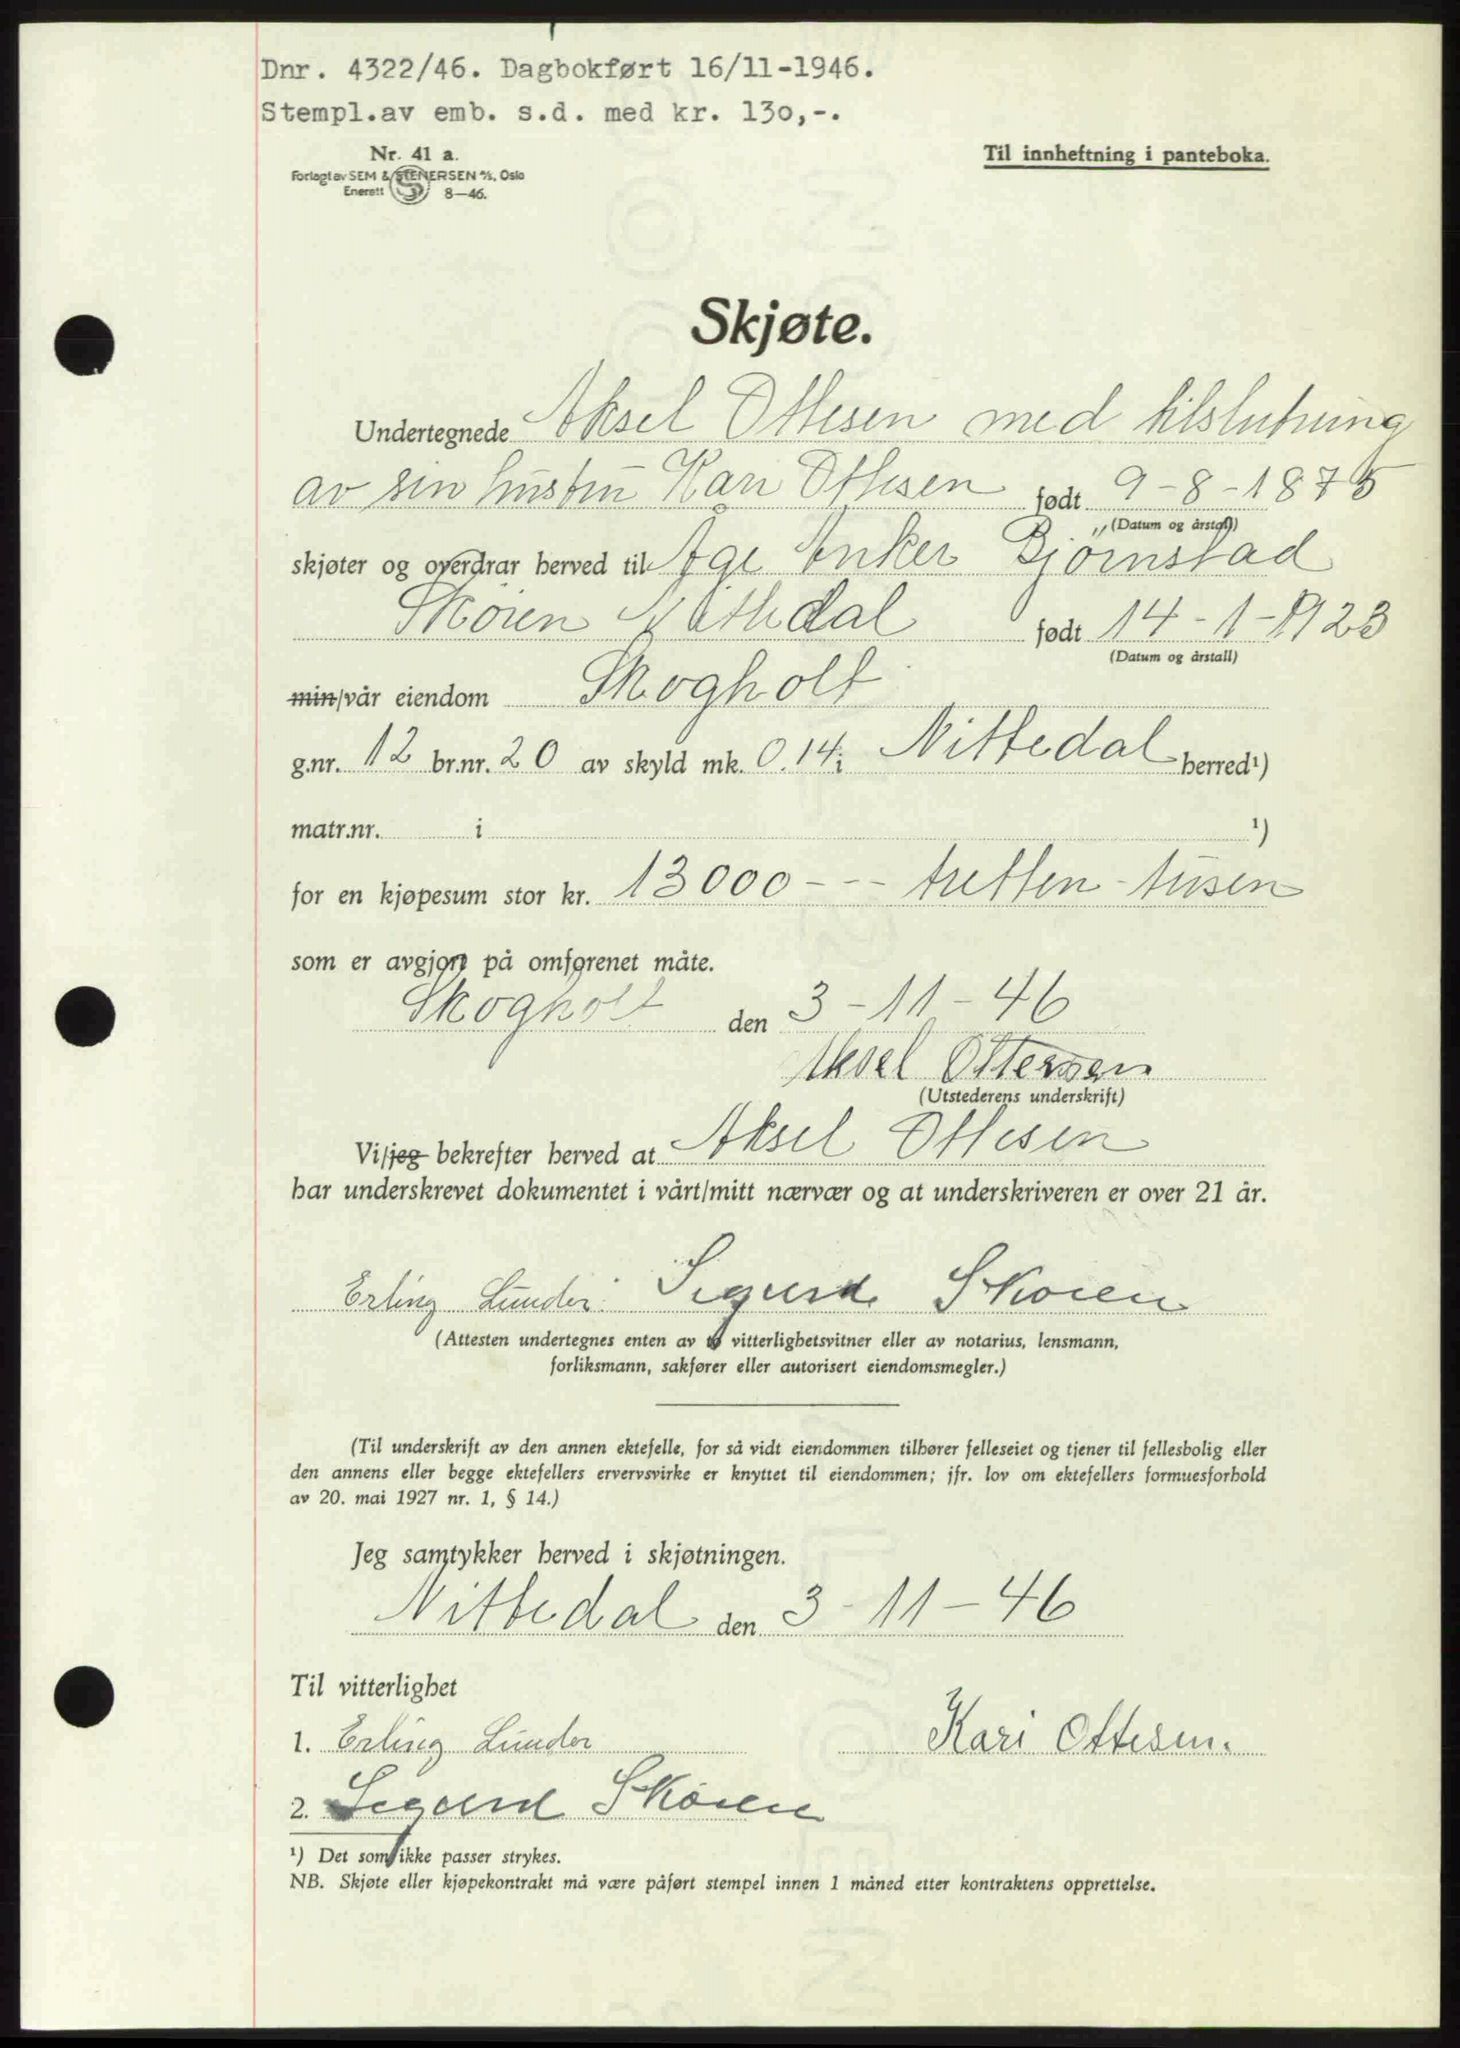 Dnr. 4322/46. Dagbokført 16/11-1946.
Stempl.av emb. s.d. med kr. 130,-.
Nr. 41 a.
Forlagt av SEM & STENERSEN A/S, Oslo
Enerett 8—46.
Til innheftning i panteboka.
Skjøte.
Undertegnede Aksel Ottesen med tilslutning
av sin hustru Kari Ottesen født 9-8-1875
(Datum og årstall)
skjøter og overdrar herved til Åge Anker Bjørnstad
Skøien Nittedal født 14-1-1923
(Datum og årstall)
min/vår eiendom Skogholt
g.nr. 12 br.nr. 20 av skyld mk. 0.14 i Nittedal herred¹)
matr.nr. i ¹)
for en kjøpesum stor kr. 13000--- tretten-tusen
som er avgjort på omforenet måte.
Skogholt den 3-11-46
Aksel Ottersen
(Utstederens underskrift)
Vi/jeg bekrefter herved at Aksel Ottesen
har underskrevet dokumentet i vårt/mitt nærvær og at underskriveren er over 21 år.
Erling Lunder Sigurd Skøien
(Attesten undertegnes enten av to vitterlighetsvitner eller av notarius, lensmann,
forliksmann, sakfører eller autorisert eiendomsmegler.)
(Til underskrift av den annen ektefelle, for så vidt eiendommen tilhører felleseiet og tjener til fellesbolig eller
den annens eller begge ektefellers ervervsvirke er knyttet til eiendommen; jfr. lov om ektefellers formuesforhold
av 20. mai 1927 nr. 1, § 14.)
Jeg samtykker herved i skjøtningen.
Nittedal den 3-11-46
Til vitterlighet
1. Erling Lunder Kari Ottesen.
2. Sigurd Skøien
¹) Det som ikke passer strykes.
NB. Skjøte eller kjøpekontrakt må være påført stempel innen 1 måned etter kontraktens opprettelse.